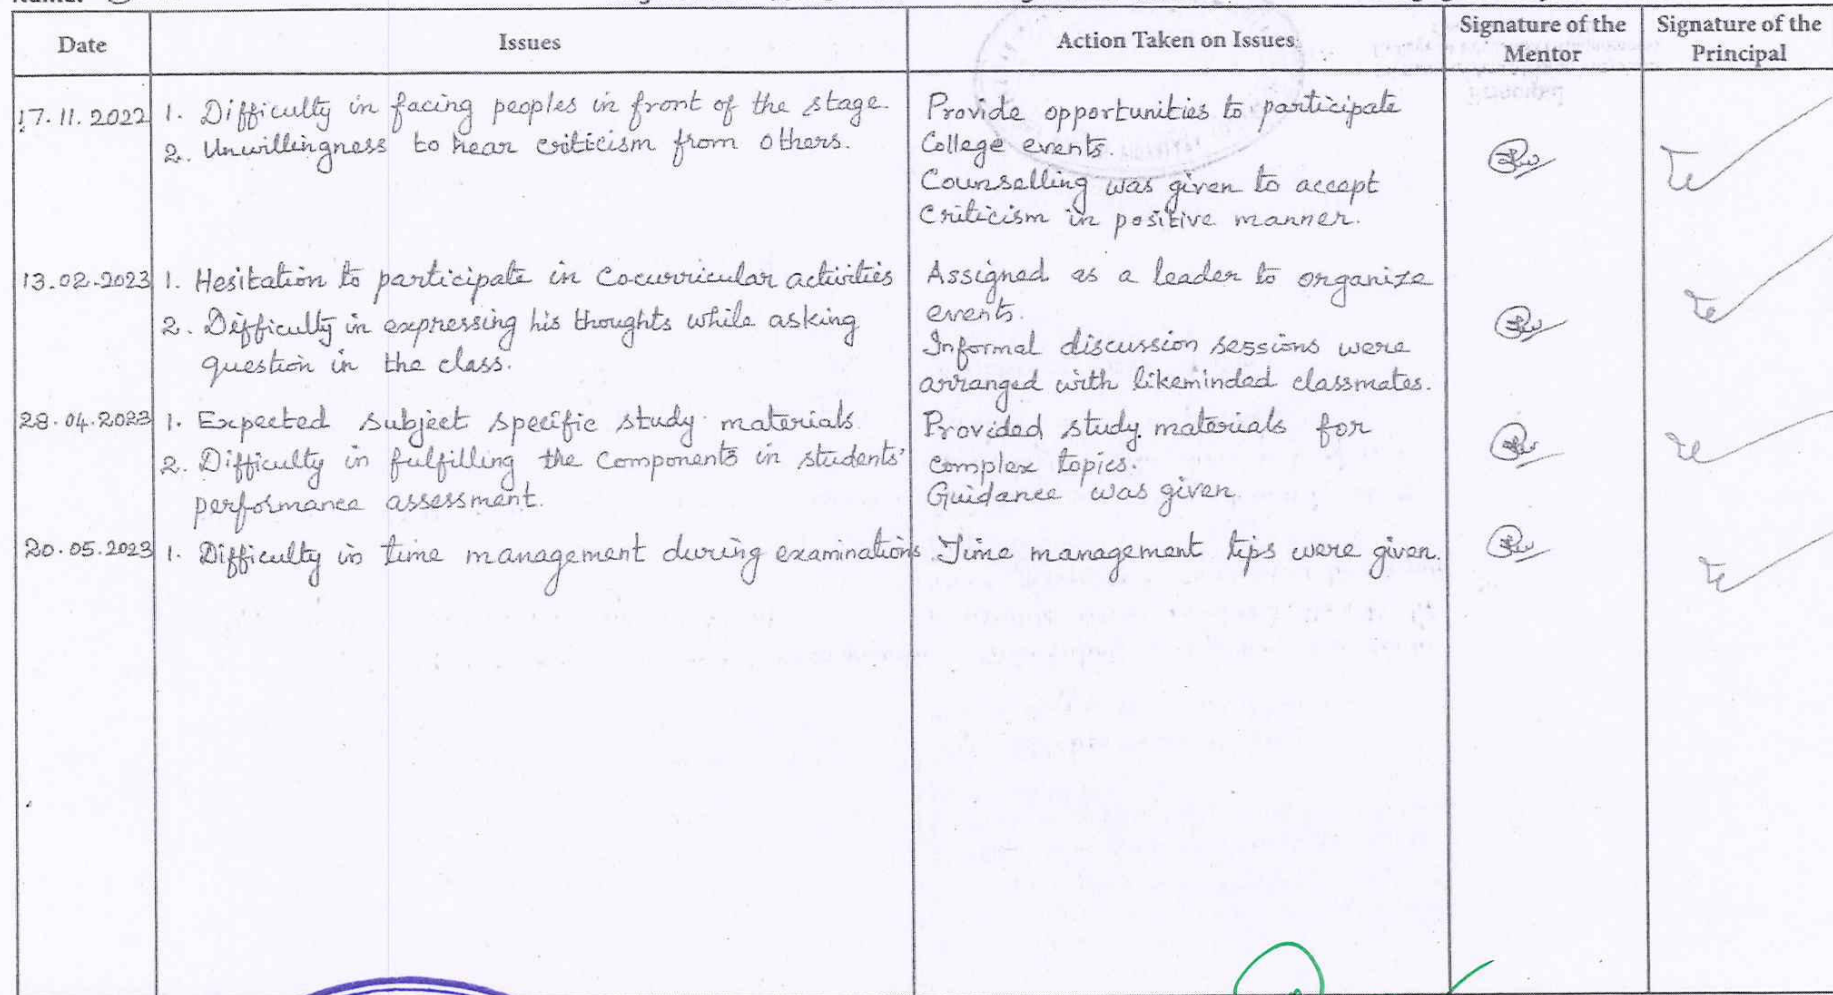 Date
Issues
Action Taken on Issues
Signature of the
Mentor
Signature of the
Principal
17.11.2022
1. Difficulty in facing peoples in front of the stage.
2. Unwillingness to hear criticism from others.
Provide opportunities to participate
College events.
Counselling was given to accept
Criticism in positive manner.
13.02.2023
1. Hesitation to participate in Cocurricular activities
2. Difficulty in expressing his thoughts while asking
question in the class.
Assigned as a leader to organize
events.
Informal discussion sessions were
arranged with likeminded classmates.
28.04.2023
1. Expected subject specific study materials
2. Difficulty in fulfilling the Components in students'
performance assessment.
Provided study materials for
complex topics.
Guidance was given
20.05.2023
1. Difficulty in time management during examinations
Time management tips were given.